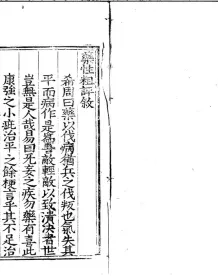 藥性粗評敘
希周曰藥以伐病猶兵之伐叛也氣失其
平而病作是焉輕敵以致潰決者世
豈無是人哉易曰无妄之疾勿藥有喜此
康強之小疵治平之餘梗言乎其不足治